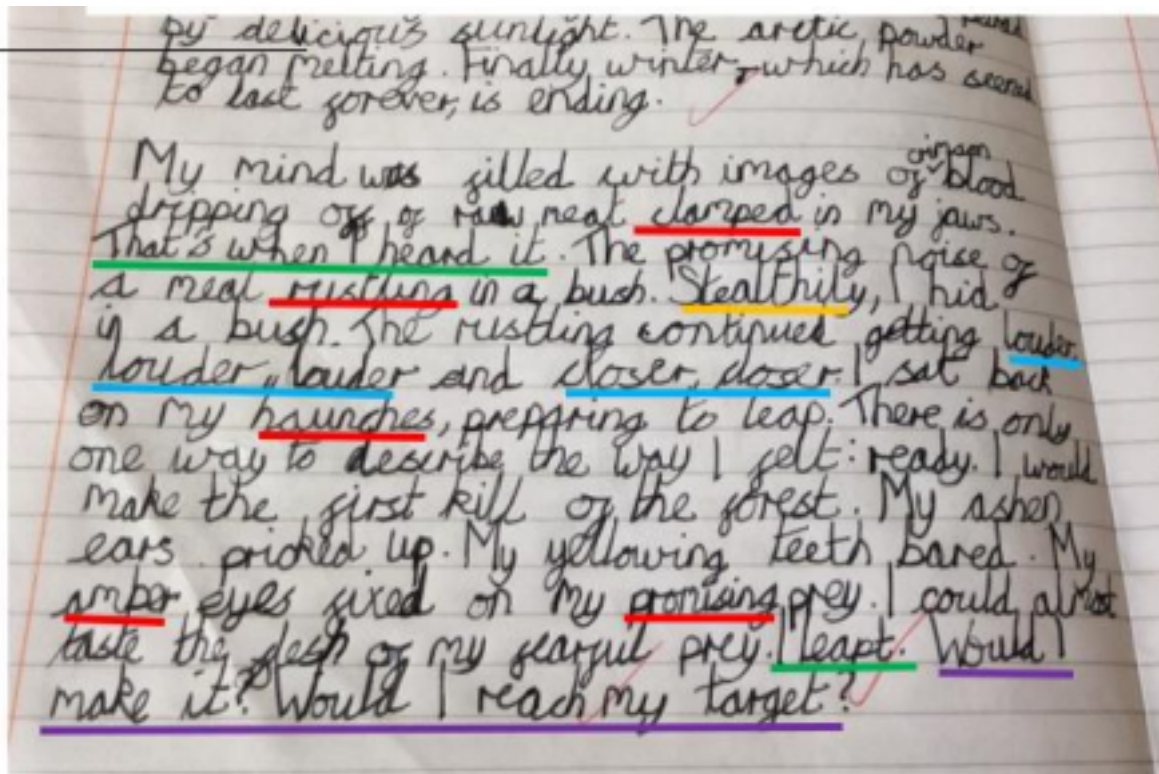 by delicious sunlight. The arctic powder
began melting. Finally, winter, which has seemed
to last forever, is ending.
My mind was filled with images of crimson blood
dripping off of raw meat clamped in my jaws.
That's when I heard it. The promising noise of
a meal rustling in a bush. Stealthily, I hid
in a bush. The rustling continued getting louder,
louder, louder and closer, closer. I sat back
on my haunches, preparing to leap. There is only
one way to describe the way I felt: ready. I would
make the first kill of the forest. My ashen
ears pricked up. My yellowing teeth bared. My
amber eyes fixed on my promising prey. I could almost
taste the flesh of my fearful prey. I leapt. Would I
make it? Would I reach my target?